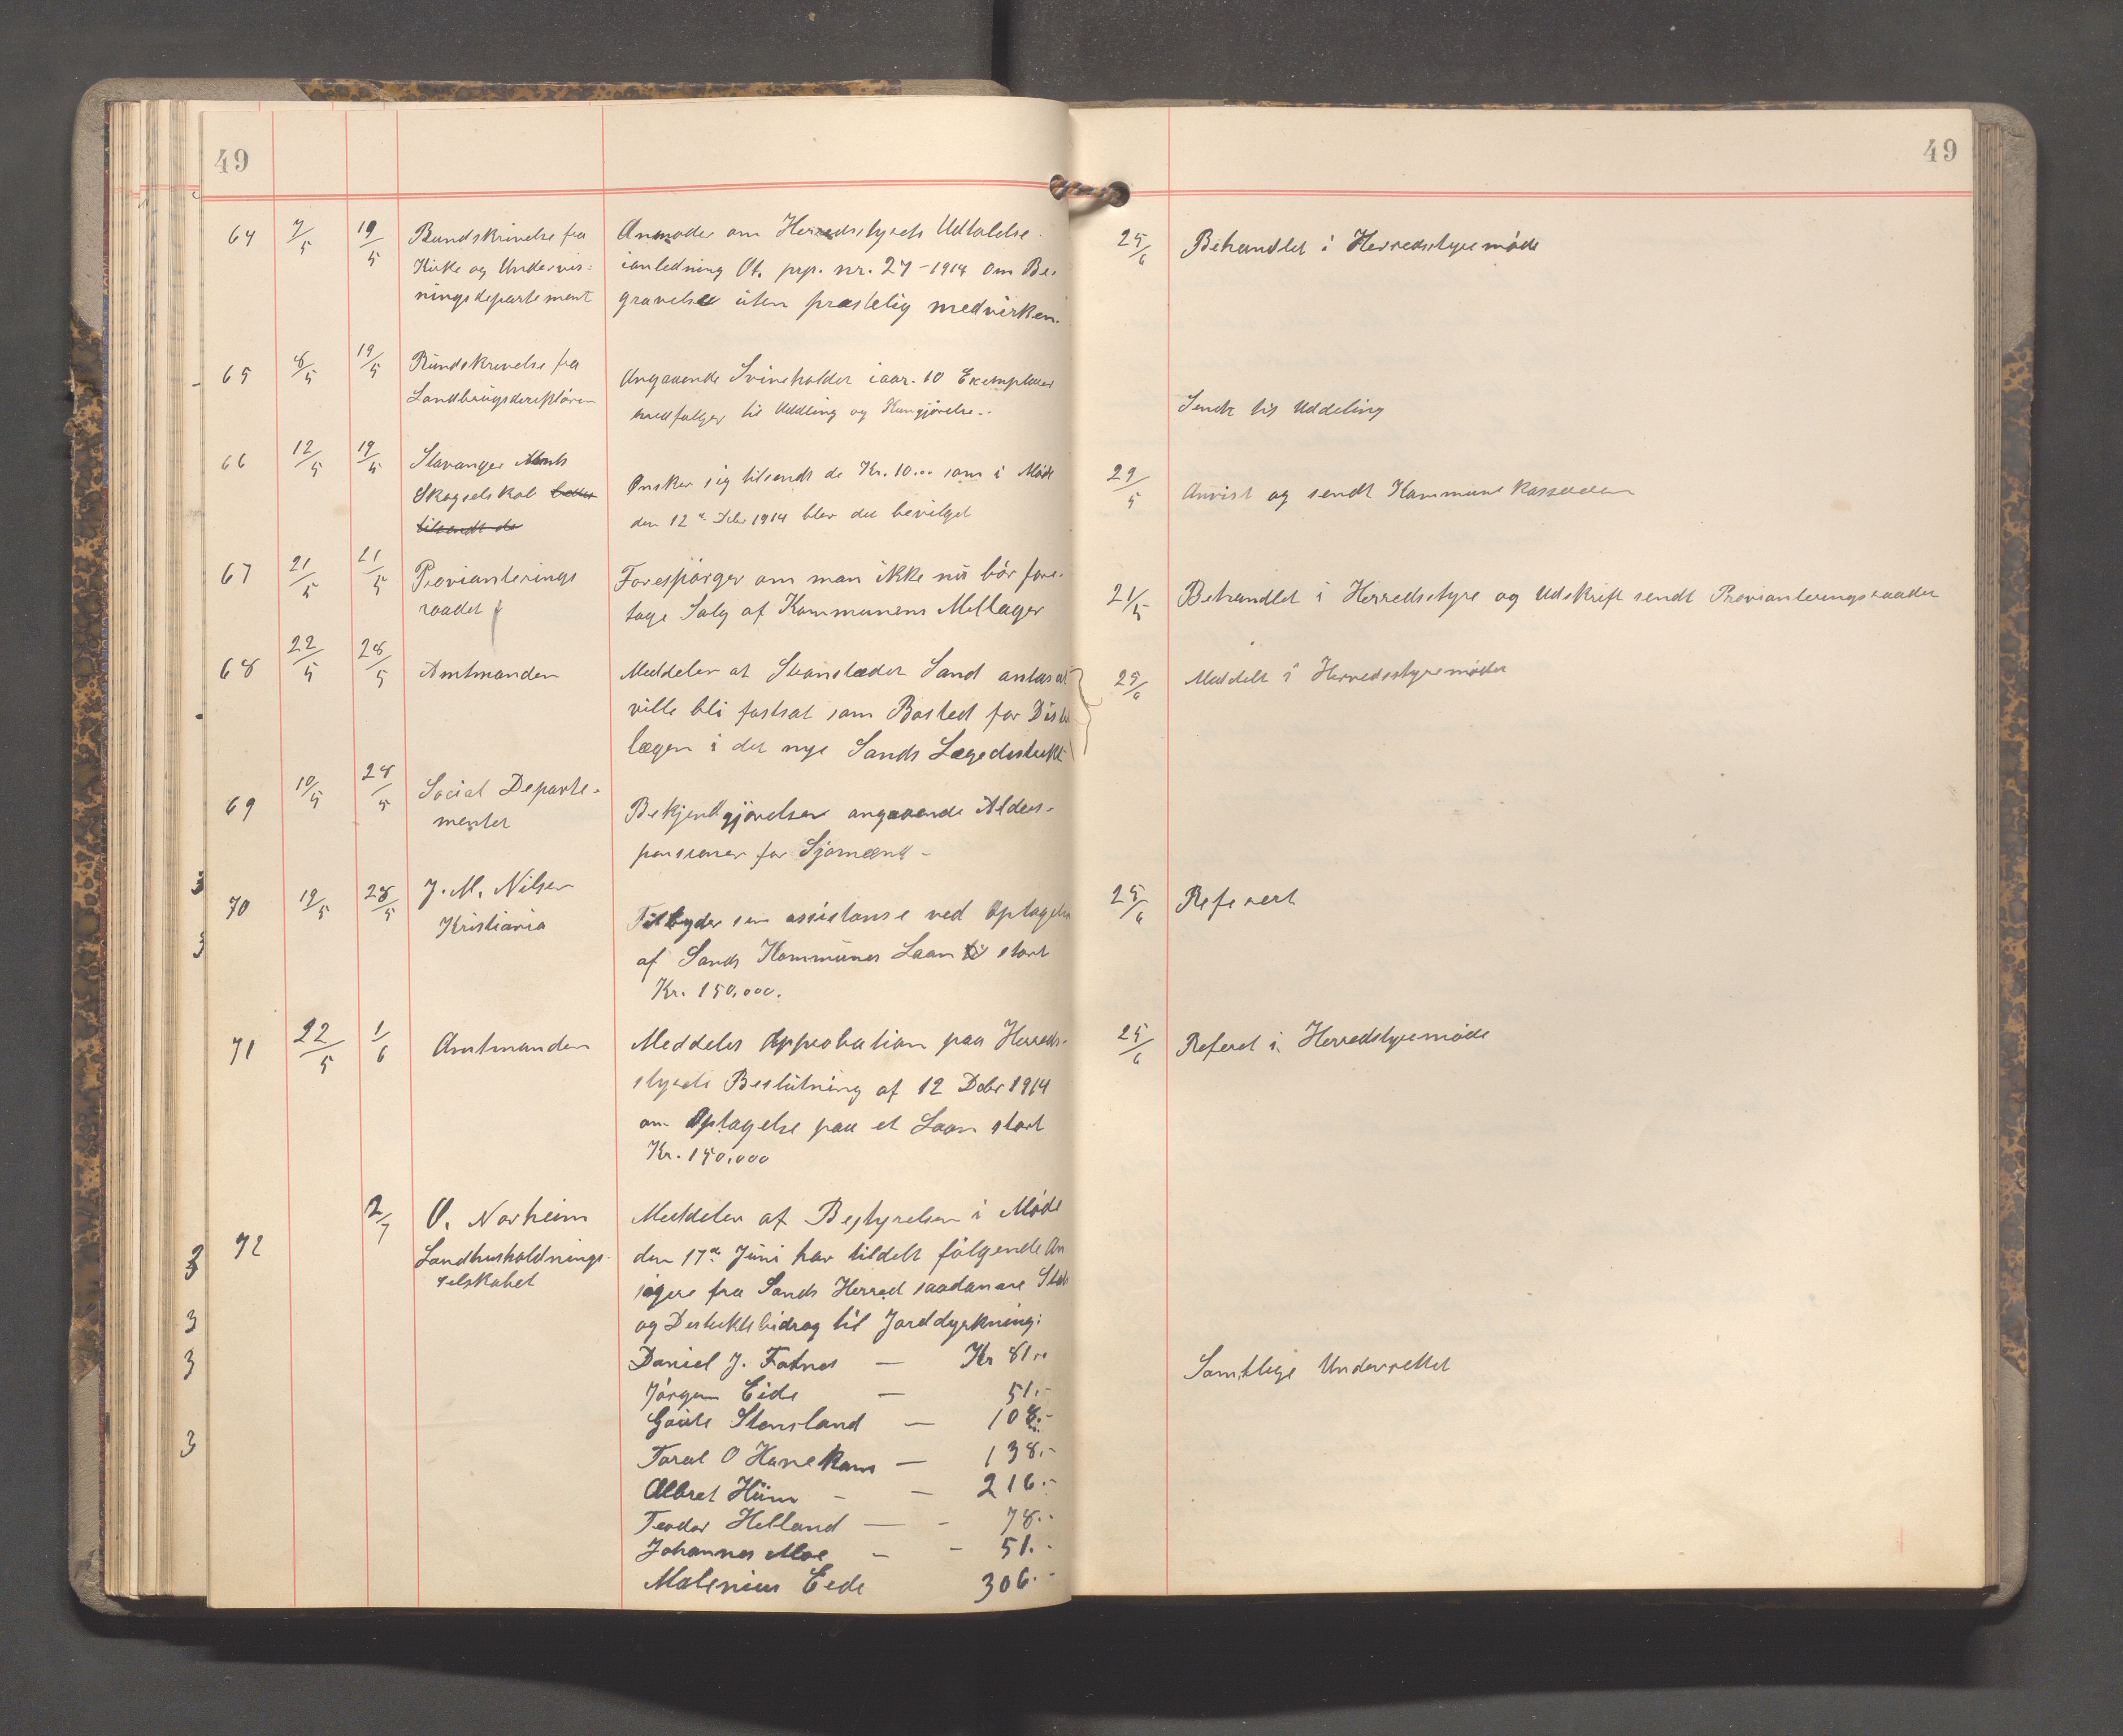 49
64 7/5 19/5 Rundskrivelse fra Anmoder om Herredsstyrets Udtalelse
Kirke og Undervis= ianledning Ot. prp. nr. 27-1914 om Be=
ningsdepartement gravelse uten præstelig medvirken.
65 8/5 19/5 Rundskrivelse fra Angaaende Svineholdet iaar. 10 Exemplarer
Landbrugsdirektören medfølger til Uddeling og Kungjörelse.
66 12/5 19/5 Stavanger Amts Ønsker sig tilsendt de Kr. 10.00 som i Møde
Skogselskab den 12te Dcbr 1914 blev det bevilget
tilsendt de
67 21/5 21/5 Provianterings Forespörger om man ikke nu bör fore=
raadet tage Salg af Kommunens Mellager
68 22/5 28/5 Amtmanden Meddeler at Strandstedet Sand antas at
ville bli fastsat som Bosted for Distr
lægen i det nye Sands Lægedistrikt
69 10/5 28/5 Social Departe= Bekjendtgjörelser angaaende Alders=
mentet pensioner for Sjømænd -
70 19/5 28/5 J. M. Nilsen Tilbyder sin assistanse ved Optagelse
Kristiania af Sands Kommunes Laan stort
Kr. 150.000.
71 22/5 1/6 Amtmanden Meddeles Approbation paa Herreds=
styrets Beslutning af 12 Dcbr 1914
om Optagelse paa et Laan stort
Kr. 150.000
72 2/7 O. Norheim Meddeler at Bestyrelsen i Møde
Landhusholdnings= den 17de Juni har tildelt fölgende An
selskabet søgere fra Sands Herred saadanne Stats
og Distriktsbidrag til Jorddyrkning:
Daniel J. Fatnes — Kr 81..
Jörgen Eide — 51.-
Gaute Stensland — 108.-
Toral O Havrekam — 138.-
Albret Hiim - — 216.-
Teodor Helland — - 78.-
Johannes Moe - - 51.-
Malenius Eide 306.-
49
25/6 Behandlet i Herredsstyremöde
Sendt til Uddeling
29/5 Anvist og sendt Kommunekassereren
21/5 Behandlet i Herredsstyre og Udskrift sendt Provianteringsraadet
25/6 Meddelt i Herredsstyremödet
25/6 Referert
25/6 Referet i Herredstyremöde
Samtlige Underrettet